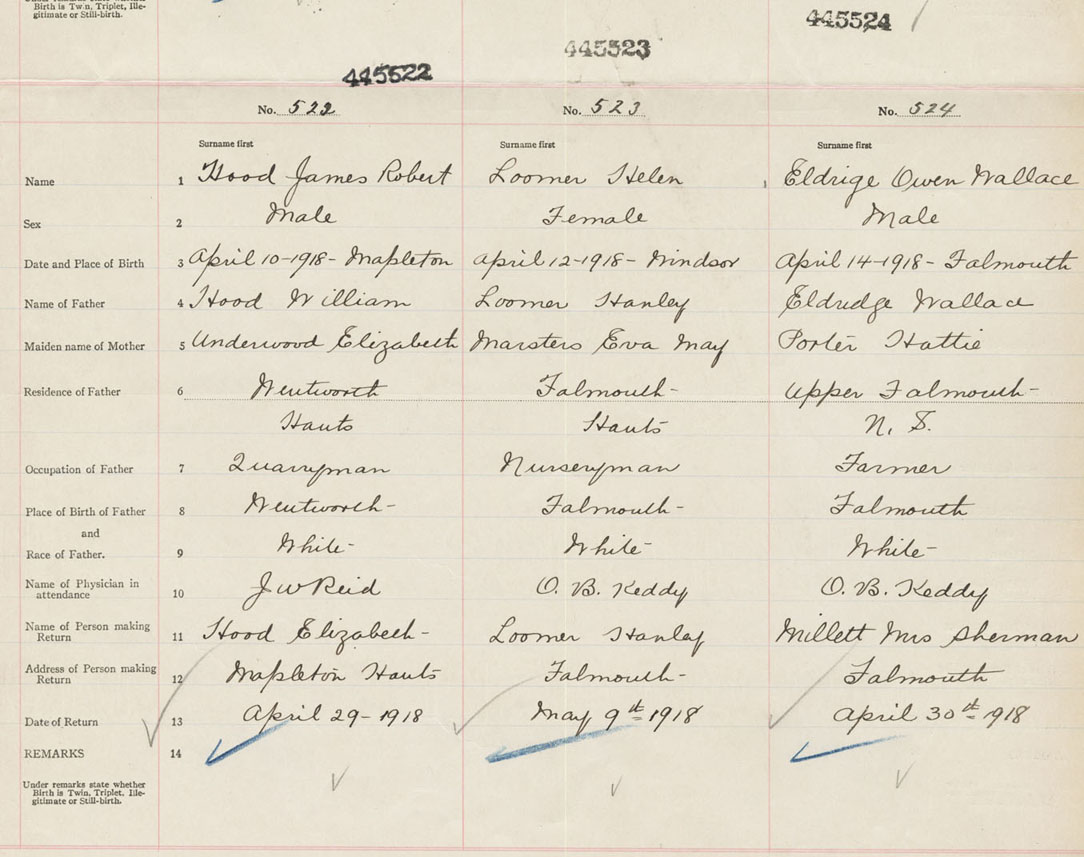 Birth is Twin, Triplet, Ille-
gitimate or Still-birth.
445522 445523 445524
No. 522 No. 523 No. 524
Surname first Surname first Surname first
Name 1 Hood James Robert Loomer Helen Eldrige Owen Wallace
Sex 2 Male Female Male
Date and Place of Birth 3 April 10-1918- Mapleton April 12-1918- Windsor April 14-1918- Falmouth
Name of Father 4 Hood William Loomer Stanley Eldredge Wallace
Maiden name of Mother 5 Underwood Elizabeth Marsters Eva May Porter Hattie
Residence of Father 6 Wentworth Falmouth- Upper Falmouth-
Hants Hants N. S.
Occupation of Father 7 Quarryman Nurseryman Farmer
Place of Birth of Father 8 Wentworth- Falmouth- Falmouth
and
Race of Father. 9 White- White- White-
Name of Physician in
attendance 10 J W Reid O. B. Keddy O. B. Keddy
Name of Person making
Return 11 Hood Elizabeth- Loomer Stanley Millett Mrs Sherman
Address of Person making
Return 12 Mapleton Hants Falmouth- Falmouth
Date of Return 13 April 29-1918 May 9th 1918 April 30th 1918
REMARKS 14
Under remarks state whether
Birth is Twin, Triplet, Ille-
gitimate or Still-birth.